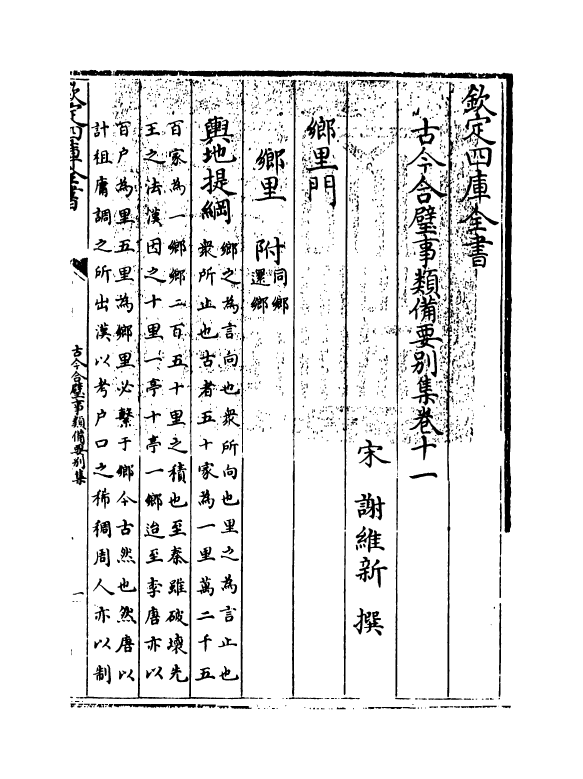 欽定四庫全書
古今合璧事類備要别集卷十一
宋 謝維新 撰
鄉里門
鄉里 附同鄉
還鄉
輿地提綱 鄉之為言向也衆所向也里之為言止也
衆所止也古者五十家為一里萬二千五
百家為一鄉鄉二百五十里之積也至秦雖破壞先
王之法漢因之十里一亭十亭一鄉迨至李唐亦以
百户為里五里為鄉里必繫于鄉今古然也然唐以
計租庸調之所出漢以考户口之稀稠周人亦以制
欽定四庫全書
古今合璧事類備要别集
一